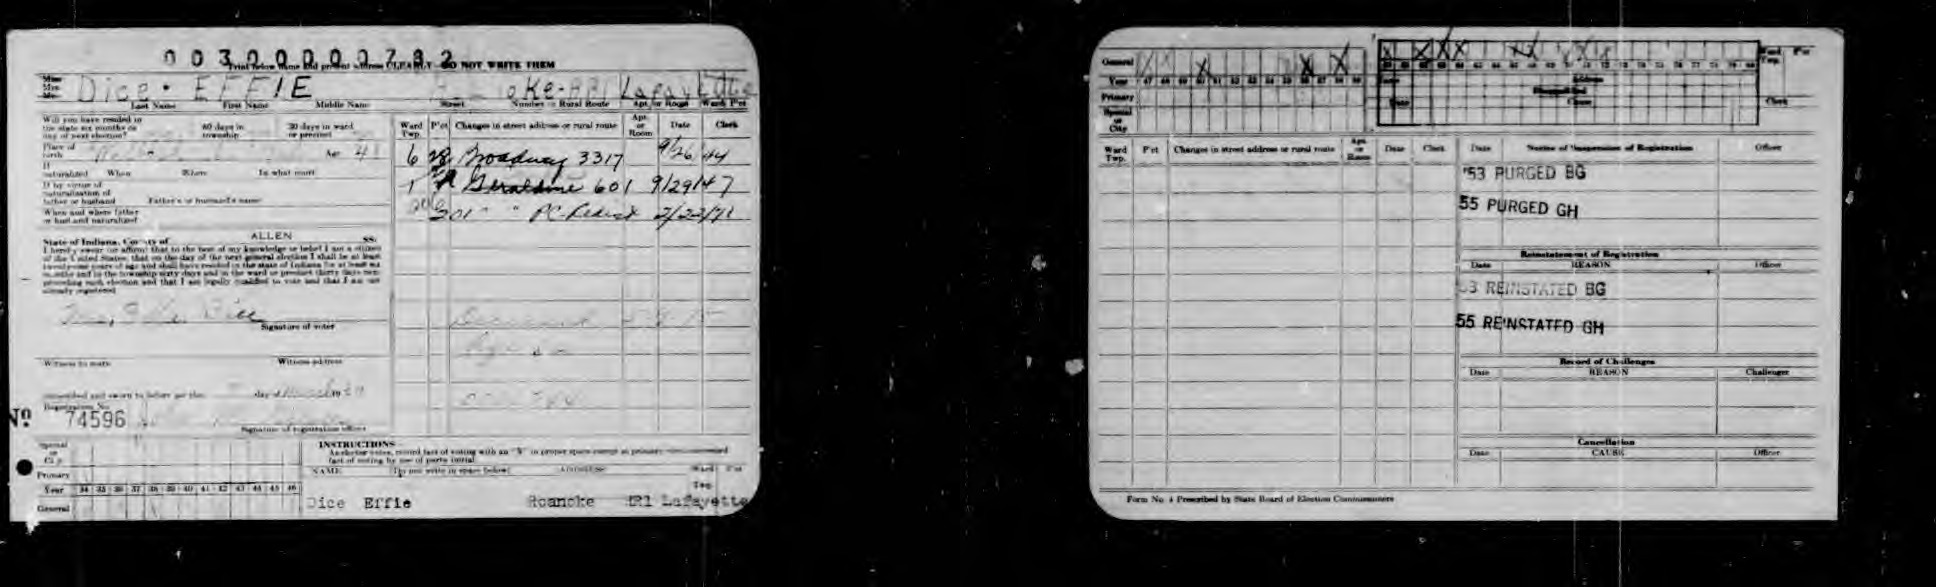 00300000782
Print below name and present address CLEARLY DO NOT WRITE THEM
Miss
Mrs.
Mr.
Dice. EFFIE Roanoke-RR1 Lafayette
Last Name First Name Middle Name Street Number or Rural Route Apt. or Room Ward P'ct
Will you have resided in
the state six months on
day of next election?
60 days in
township
30 days in ward
or precinct
Place of
birth
Age 41
If
naturalized When Where In what court
If by virtue of
naturalization of
father or husband Father's or husband's name
When and where father
or husband naturalized
State of Indiana, County of ALLEN SS:
I hereby swear (or affirm) that to the best of my knowledge or belief I am a citizen
of the United States, that on the day of the next general election I shall be at least
twenty-one years of age and shall have resided in the state of Indiana for at least six
months and in the township sixty days and in the ward or precinct thirty days next
preceding such election and that I am legally qualified to vote and that I am not
already registered
Dice
Signature of voter
Witness to mark Witness address
Subscribed and sworn to before me this day of March 19
Registration No.
No 74596
Signature of registration officer
Ward
Twp. P'ct Changes in street address or rural route Apt.
or
Room Date Clerk
6 28 Broadway 3317 9/26/44
1 Geraldine 601 9/29/47
301 " " PC-Redist 2/22/71
Deceased
Special
or
City
Primary
Year 34 35 36 37 38 39 40 41 42 43 44 45 46
General
INSTRUCTIONS
As elector votes, record fact of voting with an "X" in proper space except at primary
fact of voting by use of party initial
NAME (Do not write in space below) ADDRESS Ward P'ct
Twp
Dice Effie Roanoke RR1 Lafayette
General
Year 47 48 49 50 51 52 53 54 55 56 57 58 59
Primary
Special
or
City
Ward
Twp. P'ct
Address
Date
Cause
Clerk
Ward
Twp. P'ct Changes in street address or rural route Apt.
or
Room Date Clerk
Date Notice of Suspension of Registration Officer
'53 PURGED BG
55 PURGED GH
Reinstatement of Registration
Date REASON Officer
53 REINSTATED BG
55 REINSTATED GH
Record of Challenges
Date REASON Challenger
Cancellation
Date CAUSE Officer
Form No. 4 Prescribed by State Board of Election Commissioners